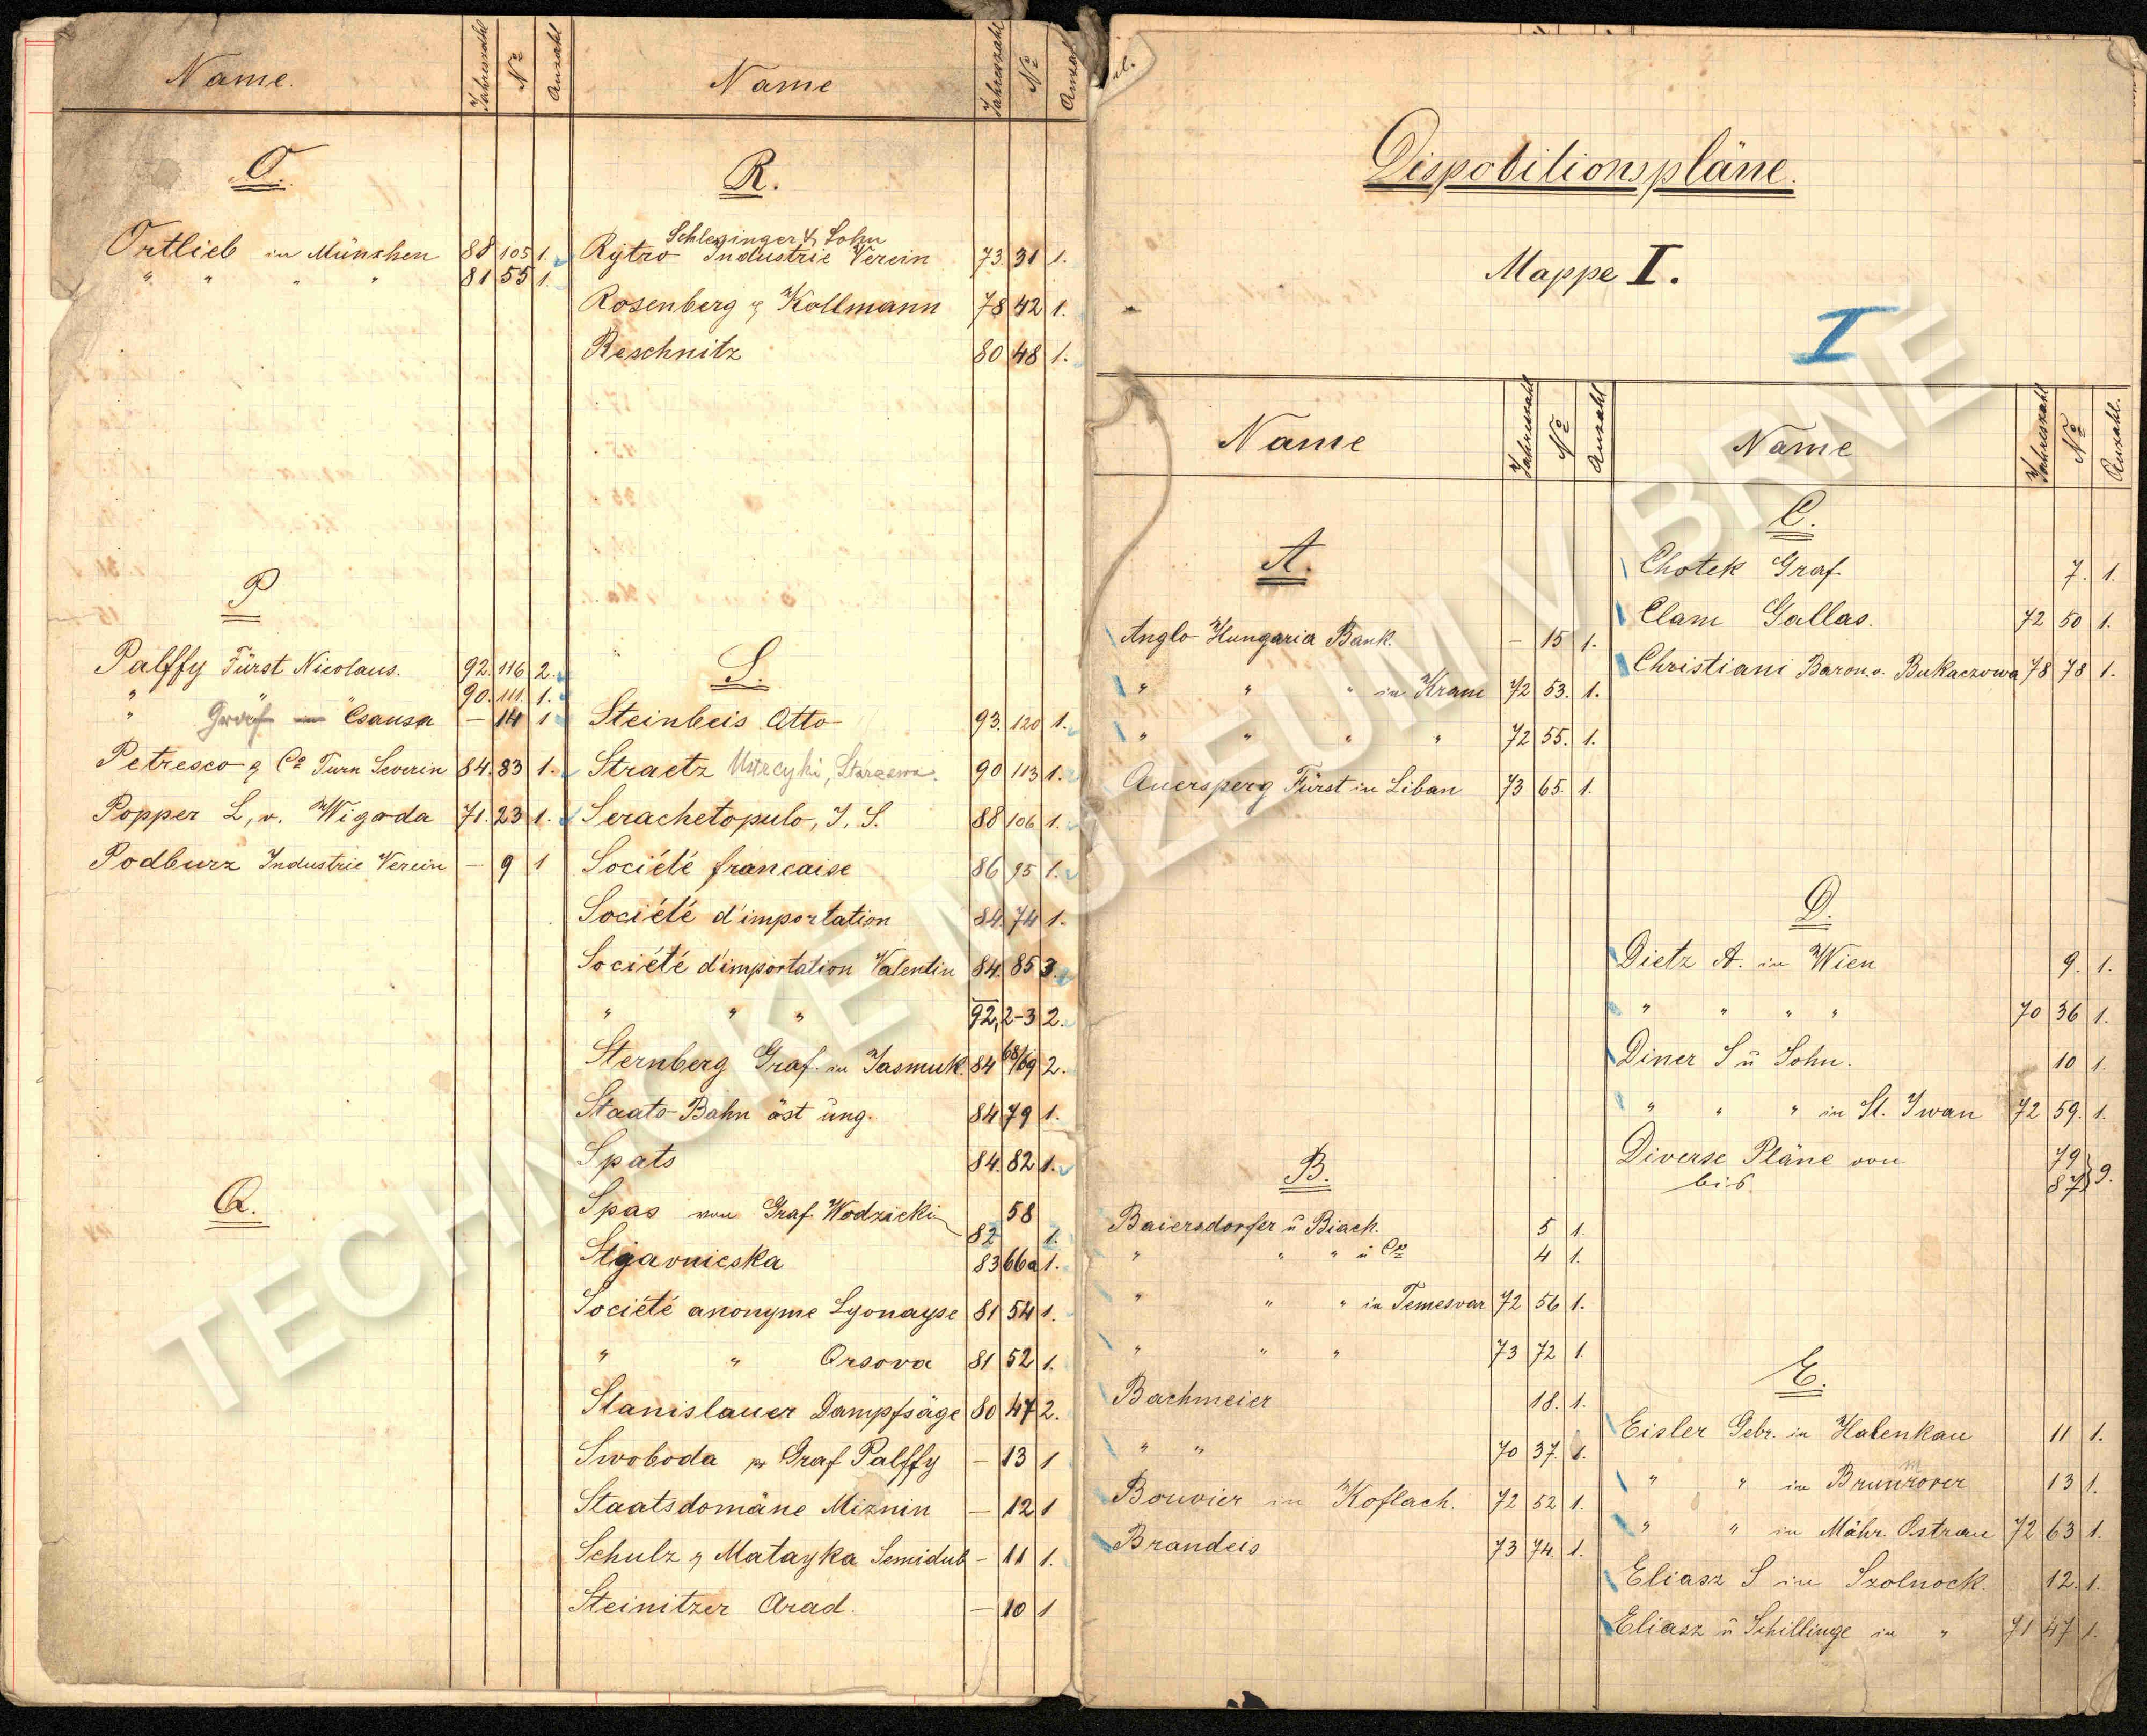 Name.
Jahreszahl
Nº
Anzahl
O.
Ortlieb in München 88 105 1.
" " " " 81 55 1.
P
Palffy Fürst Nicolaus. 92. 116 2.
" 90. 111. 1.
" Graf Csausa — 14 1
Petresco & Cº Turn Severin 84. 83 1.
Popper L, v. Wigoda 71. 23 1.
Podburz Industrie Verein — 9 1
Q.
Name
Jahreszahl
Nº
Anzahl
R.
Schlesinger & Sohn
Rytro Industrie Verein 73. 31 1.
Rosenberg & Kollmann 78 42 1.
Reschnitz 80 48 1.
S.
Steinbeis Otto 93. 120 1.
Straetz 90 113 1.
Serachetopulo, J. S. 88 106 1.
Société francaise 86 95 1.
Société d'importation 84. 74 1.
Société d'importation Valentin 84. 85 3.
" " " 92, 2-3 2.
Sternberg Graf in Jasmuk. 84 68/69 2.
Staats-Bahn öst ung. 84 79 1.
Spats 84. 82 1.
Spas von Graf Wodzicki 58
82 1.
Stjavnicska 83 66a 1.
Société anonyme Lyonayse 81 54 1.
" " Orsova 81 52 1.
Stanislauer Dampfsäge 80 47 2.
Swoboda pr Graf Palffy — 13 1
Staatsdomäne Miznin — 12 1
Schulz & Matayka Semidub — 11 1.
Steinitzer Arad. — 10 1
Dispositionspläne.
Mappe I.
I
Name
Jahreszahl
Nº
Anzahl
A.
Anglo Hungaria Bank. — 15 1.
" " " in Kram 72 53. 1.
" " " " 72 55. 1.
Auersperg Fürst in Liban 73 65. 1.
B.
Baiersdorfer ü Biach. 5 1.
" " " ü Cº 4 1.
" " " in Temesvar 72 56 1.
" " " 73 72 1.
Bachmeier 18. 1.
" " 70 37. 1.
Bouvier in Koflach. 72 52 1.
Brandeis 73 74. 1.
Name
Jahreszahl
Nº
Anzahl.
C.
Chotek Graf. 7. 1.
Clam Gallas. 72 50 1.
Christiani Baron v. Bukaczowa 78 78 1.
D.
Dietz A. in Wien 9. 1.
" " " " 70 36 1.
Diner S ü Sohn. 10 1.
" " " in St. Iwan 72 59. 1.
Diverse Pläne von 79
bis 87 } 9.
E.
Eisler Gebr. in Halenkau 11 1.
" " in 13 1.
" " in Mähr. Ostrau 72 63 1.
Eliasz S in Szolnock. 12. 1.
Eliasz ü Schillinge in " 71 47 1.
TECHNICKÉ MUZEUM V BRNĚ